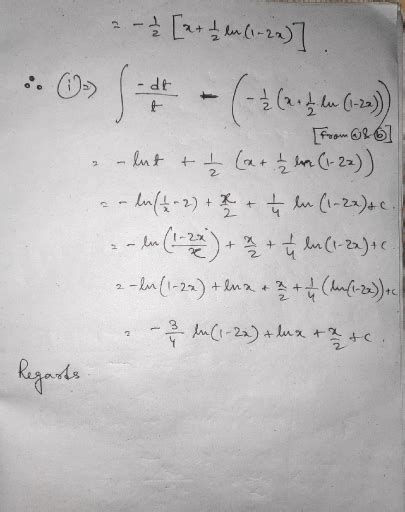 = - 1/2 [x + 1/2 ln (1-2x)]
∴ (i) => ∫ -dt/t - (-1/2 (x + 1/2 ln (1-2x)))
[From (a) & (b)]
= - ln t + 1/2 (x + 1/2 ln (1-2x))
= - ln (1/x - 2) + x/2 + 1/4 ln (1-2x) + c.
= - ln ((1-2x)/x) + x/2 + 1/4 ln (1-2x) + c
= - ln (1-2x) + ln x + x/2 + 1/4 (ln (1-2x)) + c
= - 3/4 ln (1-2x) + ln x + x/2 + c
Regards